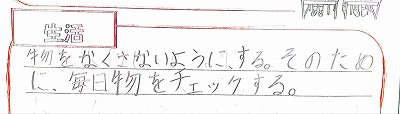 生活
物をなくさないように、する。そのため
に、毎日物をチェックする。